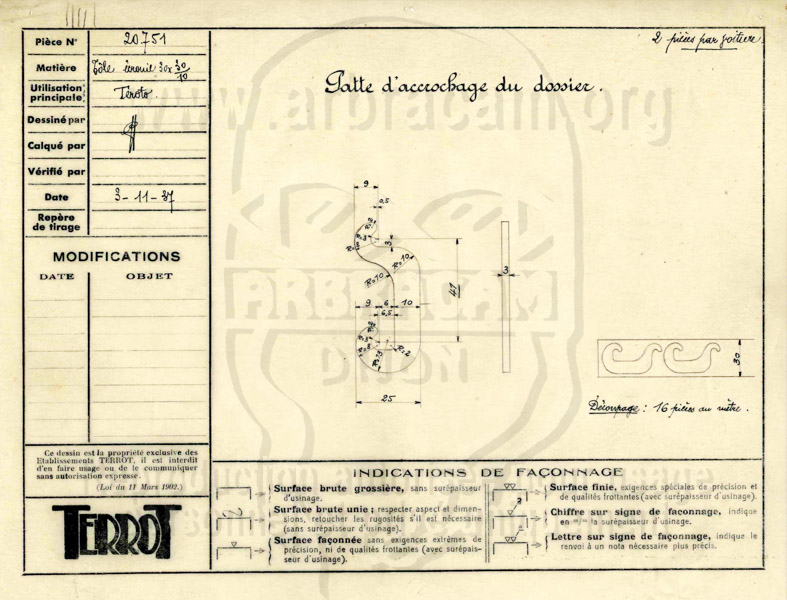 Pièce N° 20751
Matière Tôle écrouie 30x 30/10
Utilisation principale: Téroto.
Dessiné par
Calqué par
Vérifié par
Date 3-11-37
Repère de tirage
MODIFICATIONS
DATE OBJET
Ce dessin est la propriété exclusive des
Etablissements TERROT, il est interdit
d'en faire usage ou de le communiquer
sans autorisation expresse.
(Loi du 11 Mars 1902.)
TERROT
2 pièces par
Patte d'accrochage du dossier.
9
0,5
R=2
R=3
R=8
3
R=10
R=10
41
3
9 6 10
6,5
R=2
R=3
R=8
R=13
R=2
25
30
Découpage : 16 pièces au mètre.
www.arbracam.org
ARBRACAM
DIJON
INDICATIONS DE FAÇONNAGE
Surface brute grossière, sans surépaisseur
d'usinage.
Surface brute unie ; respecter aspect et dimen-
sions, retoucher les rugosités s'il est nécessaire
(sans surépaisseur d'usinage).
Surface façonnée sans exigences extrêmes de
précision, ni de qualités frottantes (avec surépais-
seur d'usinage).
Surface finie, exigences spéciales de précision et
de qualités frottantes (avec surépaisseur d'usinage).
2
Chiffre sur signe de façonnage, indique
en m/m la surépaisseur d'usinage.
Lettre sur signe de façonnage, indique le
renvoi à un nota nécessaire plus précis.